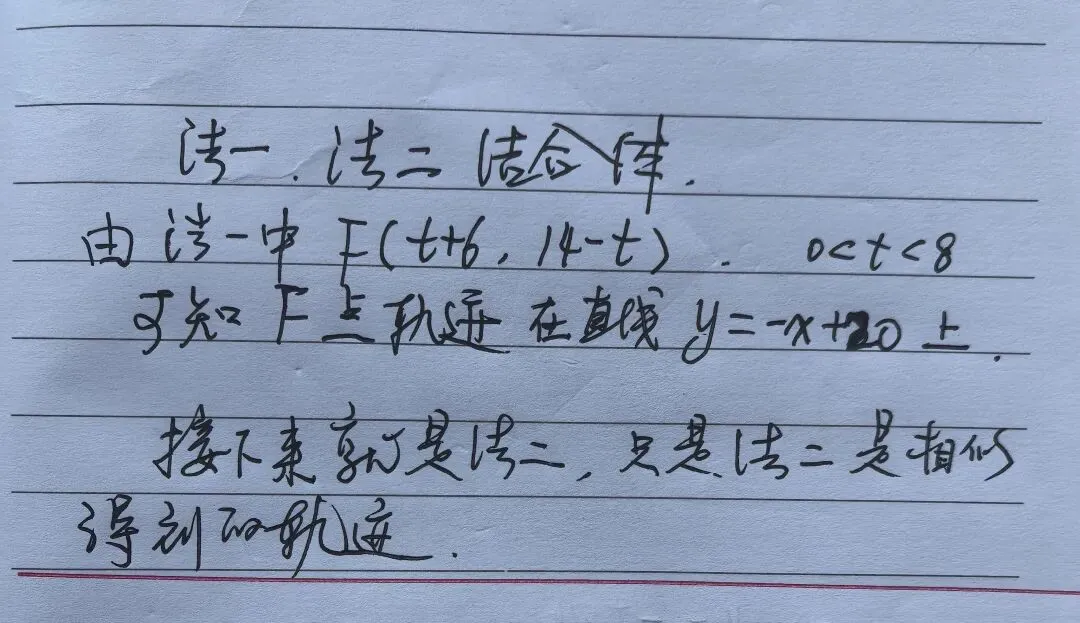 法一、法二结合体.
由法一中 F(t+6, 14-t). 0<t<8
可知 F点轨迹在直线 y=-x+20 上.
接下来就是法二, 只是法二是相似
得到的轨迹.